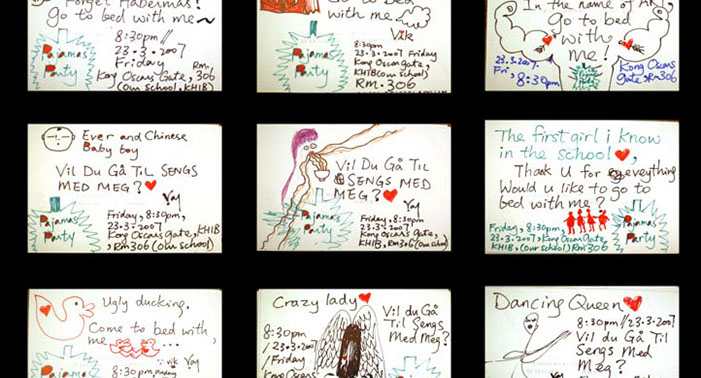 Forget Habermas!
Go to bed with me~
8:30pm//
23.3.2007
Friday
Pajamas
Party
Rm.
Kong Oscars Gate, 306
(our school, KHIB)
Go to bed
with me.
Vik
8:30pm
23.3.2007 Friday
Kong Oscars Gate,
KHIB (our school)
Rm. 306
Pajamas
Party
In the name of ART,
go to
bed
with
me!
23.3.2007.
Fri, 8:30pm
Pajamas
Party
Kong Oscars
Gate, Rm306
Ever and Chinese
Baby boy
Vil Du Gå Til Sengs
Med Meg?
Yay
Pajamas
Party
Friday, 8:30pm,
23.3.2007
Kong Oscars Gate, KHIB
, Rm306 (our school)
Vil Du Gå Til
Sengs Med
Meg?
Yay
Pajamas
Party
Friday, 8:30pm,
23.3.2007
Kong Oscars Gate,
KHIB, Rm306 (our school)
The first girl i know
in the school,
Thank U for eveything
Would u like to go to
bed with me?
Friday, 8:30pm,
23.3.2007, Kong Oscars Gate,
KHIB, (our school) Rm306
Pajamas
Party
Ugly ducking.
Come to bed with
me ...
vik Yay
8:30pm
Pajamas
Crazy lady
8:30pm
/23.3.2007
/Friday
Kong Oscars
Vil du Gå
Til Sengs
Med Meg?
Yay
Pajamas
Dancing Queen
8:30pm//23.3.2007
Vil du Gå
Til Sengs
Med
Meg?
Yay